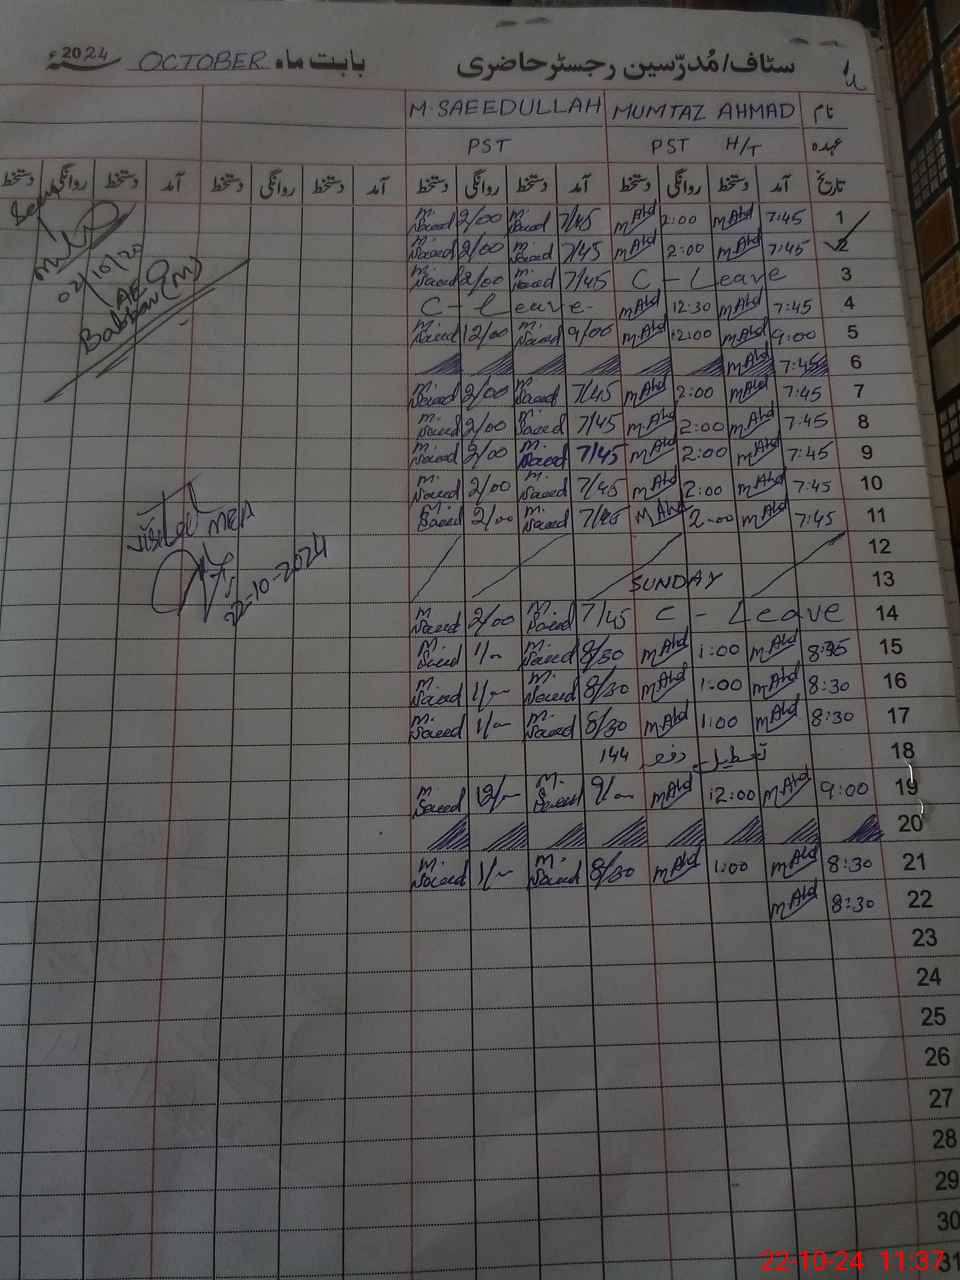 سٹاف/مُدرّسین رجسٹر حاضری بابت ماہ OCTOBER 2024ء
نام MUMTAZ AHMAD M. SAEEDULLAH
عہدہ PST H/T PST
تاریخ آمد دستخط روانگی دستخط آمد دستخط روانگی دستخط آمد دستخط روانگی دستخط آمد دستخط روانگی دستخط
1 7:45 M Ahd 2:00 M Ahd 7/45 M. Saeed 2/00 M. Saeed
2 7:45 M Ahd 2:00 M Ahd 7/45 M. Saeed 2/00 M. Saeed
3 C - Leave 7/45 M. Saeed 2/00 M. Saeed
4 7:45 M Ahd 12:30 M Ahd C - Leave
5 9:00 M Ahd 12:00 M Ahd 9/00 M. Saeed 12/00 M. Saeed
6 7:45 M Ahd
7 7:45 M Ahd 2:00 M Ahd 7/45 M. Saeed 2/00 M. Saeed
8 7:45 M Ahd 2:00 M Ahd 7/45 M. Saeed 2/00 M. Saeed
9 7:45 M Ahd 2:00 M Ahd 7/45 M. Saeed 2/00 M. Saeed
10 7:45 M Ahd 2:00 M Ahd 7/45 M. Saeed 2/00 M. Saeed
11 7:45 M Ahd 2:00 M Ahd 7/45 M. Saeed 2/00 M. Saeed
12
13 SUNDAY
14 C - Leave 7/45 M. Saeed 2/00 M. Saeed
15 M Ahd 1:00 M Ahd 8/30 M. Saeed 1/00 M. Saeed
16 8:30 M Ahd 1:00 M Ahd 8/30 M. Saeed 1/00 M. Saeed
17 8:30 M Ahd 1:00 M Ahd 8/30 M. Saeed 1/00 M. Saeed
18 تعطیل دفعہ 144
19 9:00 M Ahd 12:00 M Ahd 9/00 M. Saeed 12/00 M. Saeed
20
21 8:30 M Ahd 1:00 M Ahd 8/30 M. Saeed 1/00 M. Saeed
22 8:30 M Ahd
23
24
25
26
27
28
29
30
31
02/10/20
Visited MEA
22-10-2024
22-10-24 11:37